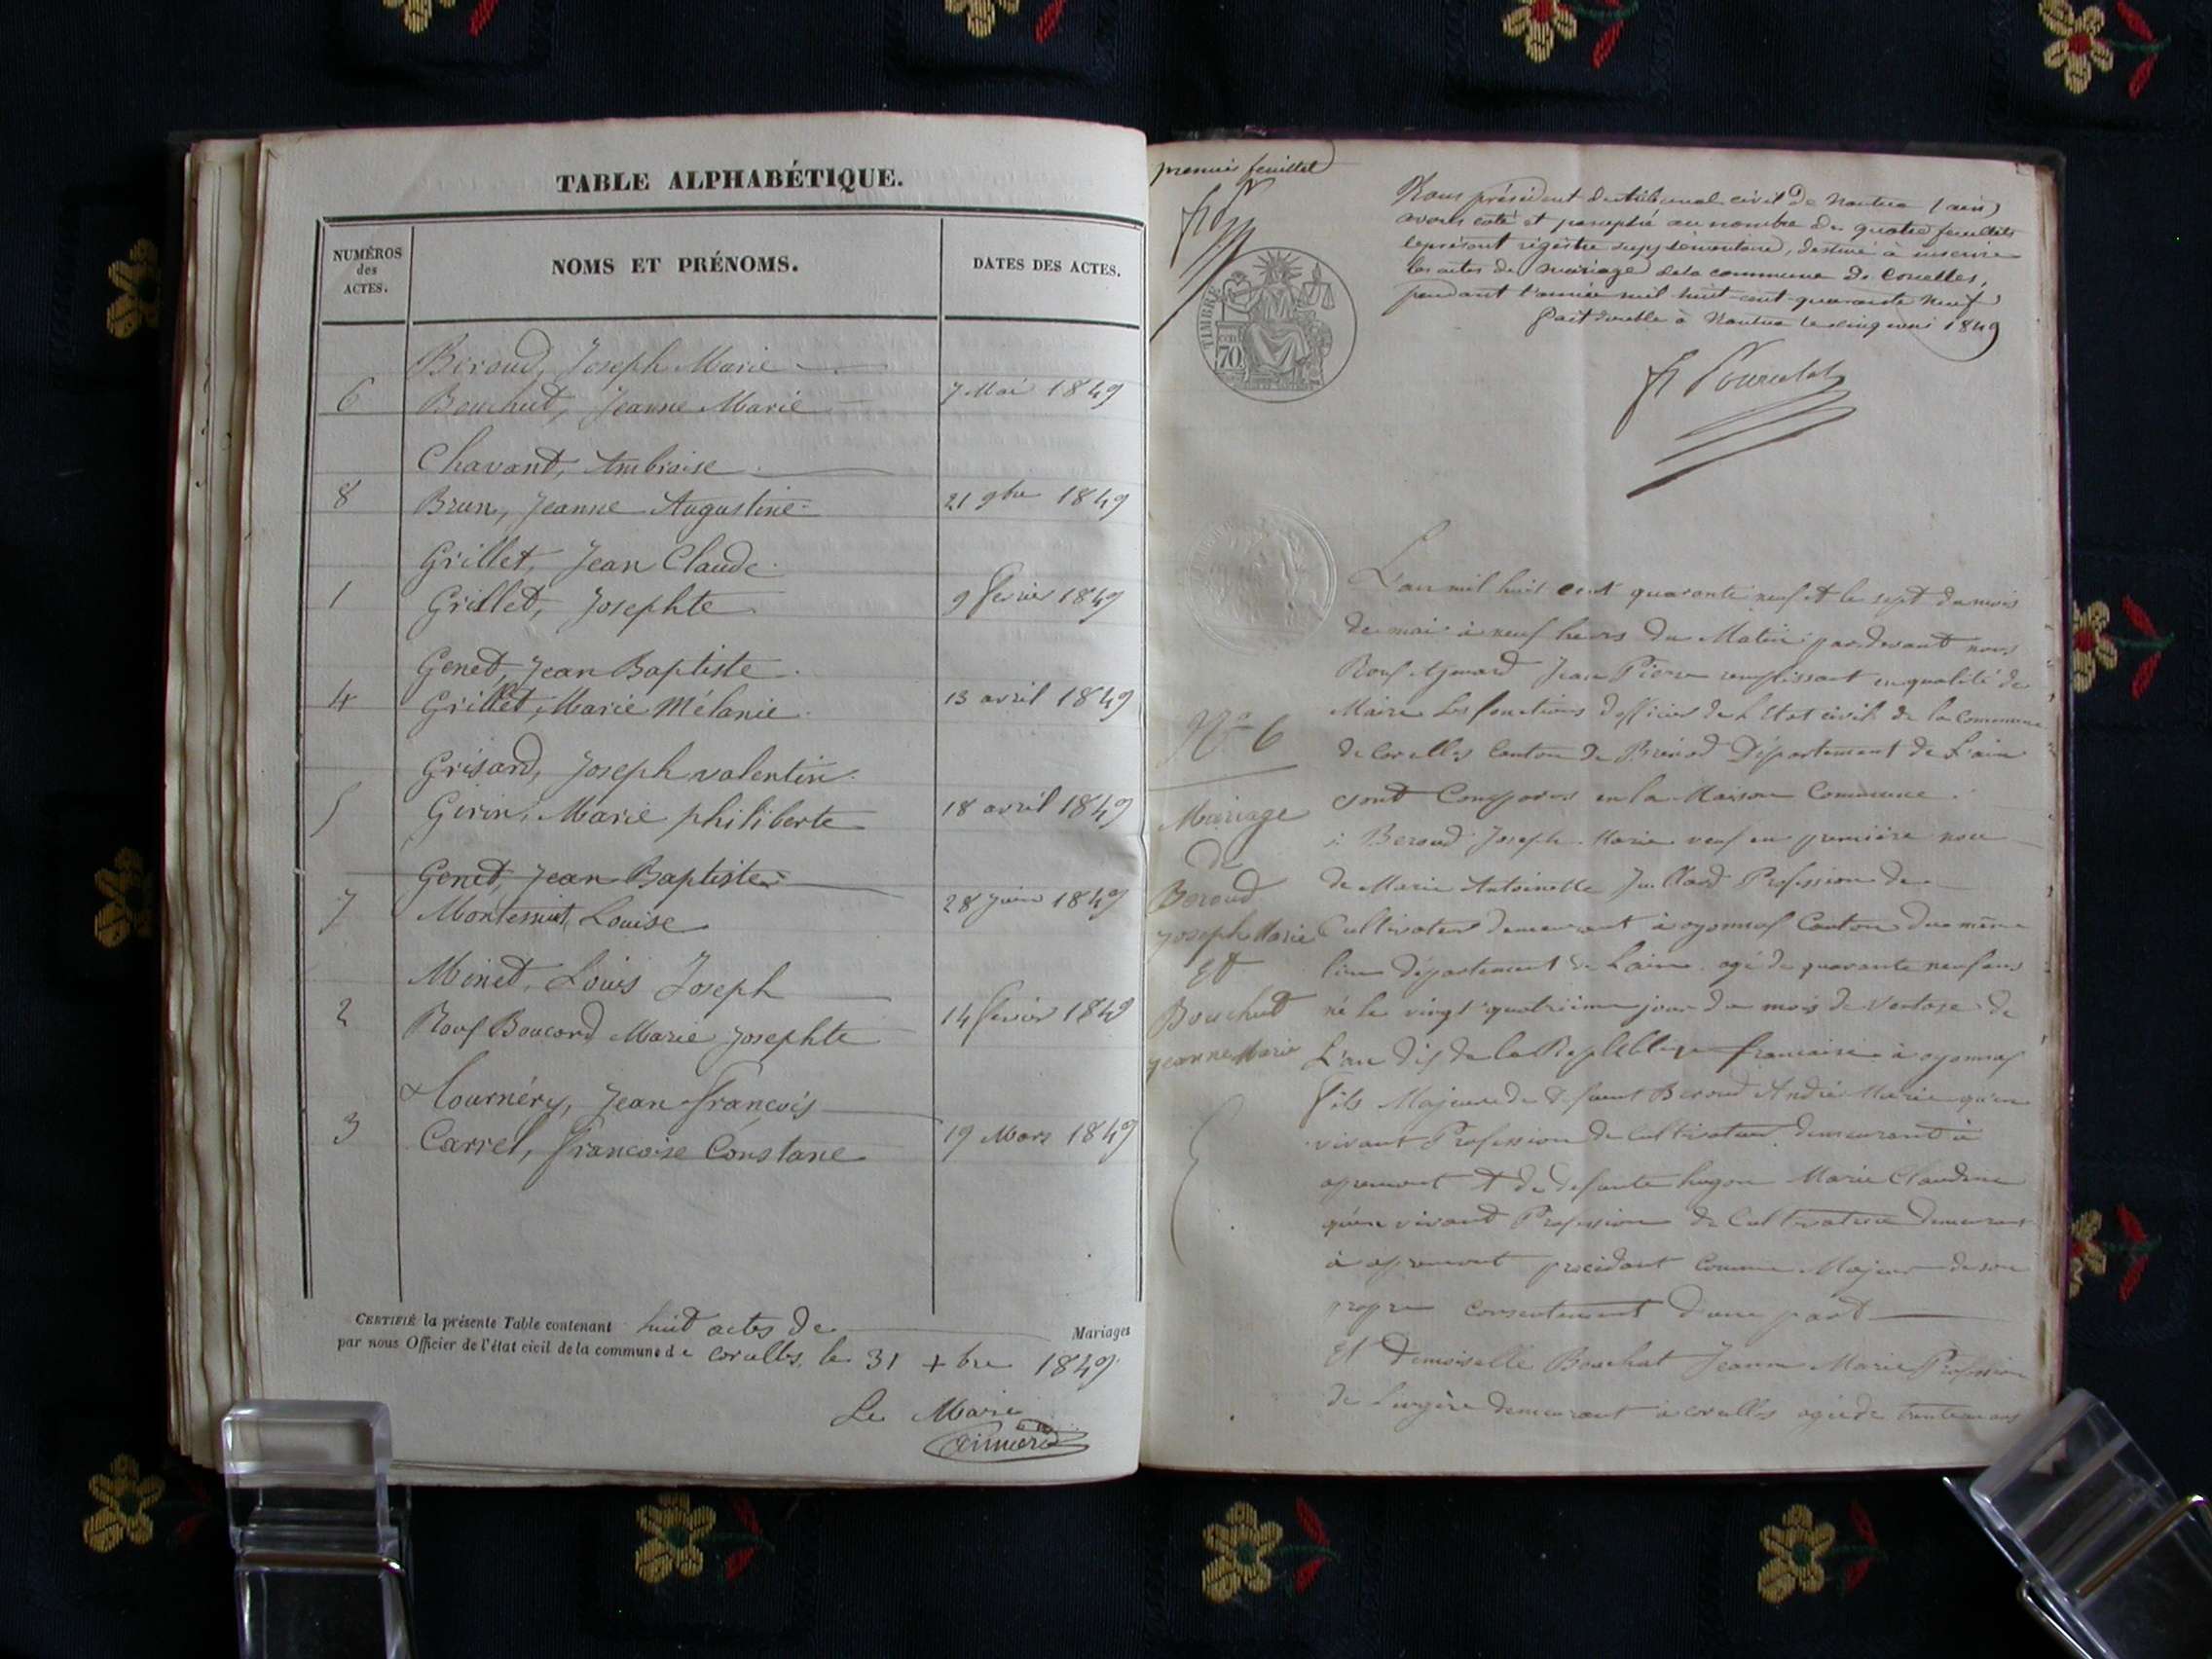 TABLE ALPHABÉTIQUE.
NUMÉROS
des
ACTES.
NOMS ET PRÉNOMS.
DATES DES ACTES.
Beroud, Joseph Marie
6 Bouchut, Jeanne Marie 7 Mai 1849
Chavant, Ambroise
8 Brun, Jeanne Augustine 21 9bre 1849
Grillet, Jean Claude
1 Grillet, Josephte 9 fevrier 1849
Genet, Jean Baptiste
4 Grillet, Marie Mélanie 13 avril 1849
Grisard, Joseph valentin
5 Girin, Marie philiberte 18 avril 1849
Genet, Jean Baptiste
7 Montessuit, Louise 28 juin 1849
Minet, Louis Joseph
2 Rouf Boucard Marie Josephte 14 fevrier 1849
Tournéry, Jean françois
3 Carrel, francoise Constane 19 Mars 1849
CERTIFIÉ la présente Table contenant huit actes de Mariages
par nous Officier de l'état civil de la commune de corcelles, le 31 +bre 1849.
Le Maire
premier feuillet
TIMBRE
70
Nous président du tribunal civil de Nantua (ain)
avons coté et paraphé au nombre de quatre feuillets
le présent régistre supplémentaire, destiné à inscrire
les actes de mariage de la commune de Corcelles,
pendant l'année mil huit-cent-quarante neuf
fait double à Nantua le cinq mai 1849
N° 6
Mariage
de
Beroud
Joseph Marie
Et
Bouchut
Jeanne Marie
L'an mil huit cent quarante neuf et le sept du mois
de mai à neuf heures du Matin par devant nous
Rouf Jean Pierre remplissant en qualité de
Maire les fonctions d'officier de l'Etat civil de la Commune
de Corcelles Canton de Brénod Département de L'ain
sont Comparus en la Maison Commune
Beroud Joseph Marie veuf en premiere noce
de Marie Antoinette Juillard Profession de
Cultivateur demeurant à oyonnaf Canton du même
lieu département de L'ain agé de quarante neuf ans
né le vingt quatrième jour du mois de Ventose de
L'an dif de la française à oyonnaf
fils Majeur de defunt Beroud André Marie qu'en
vivant Profession de Cultivateur demeurant à
apremont Et de defunte hugon Marie Claudine
qu'en vivant Profession de Cultivatrice demeurant
à apremont procédant Comme Majeur de son
propre consentement d'une part
Et Demoiselle Bouchut Jeanne Marie Profession
de Lingère demeurant à corcelles agée de ans